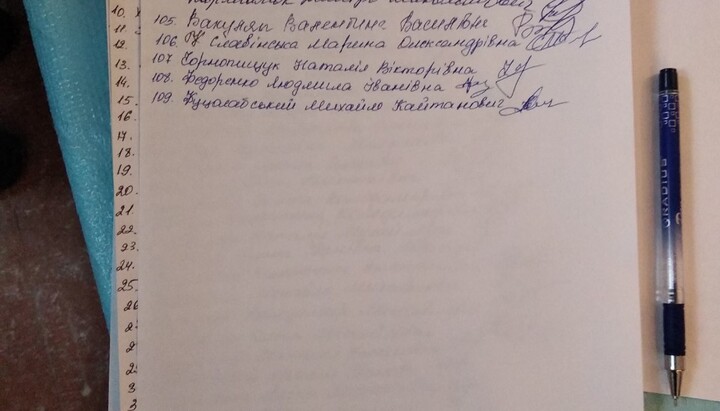 10.
105. Вакуляк Валентина Василівн
11.
106. Славінська Марина Олександрівна
12.
107 Чорнопищук Наталія Вікторівна
13.
108. Федоренко Людмила Іванівна
14.
109. Куцолабський Михайло Кайтанович
15.
16.
17.
18.
19.
20.
21.
22.
23.
24.
25.
26
2
2
2
3
3
GRADIUS